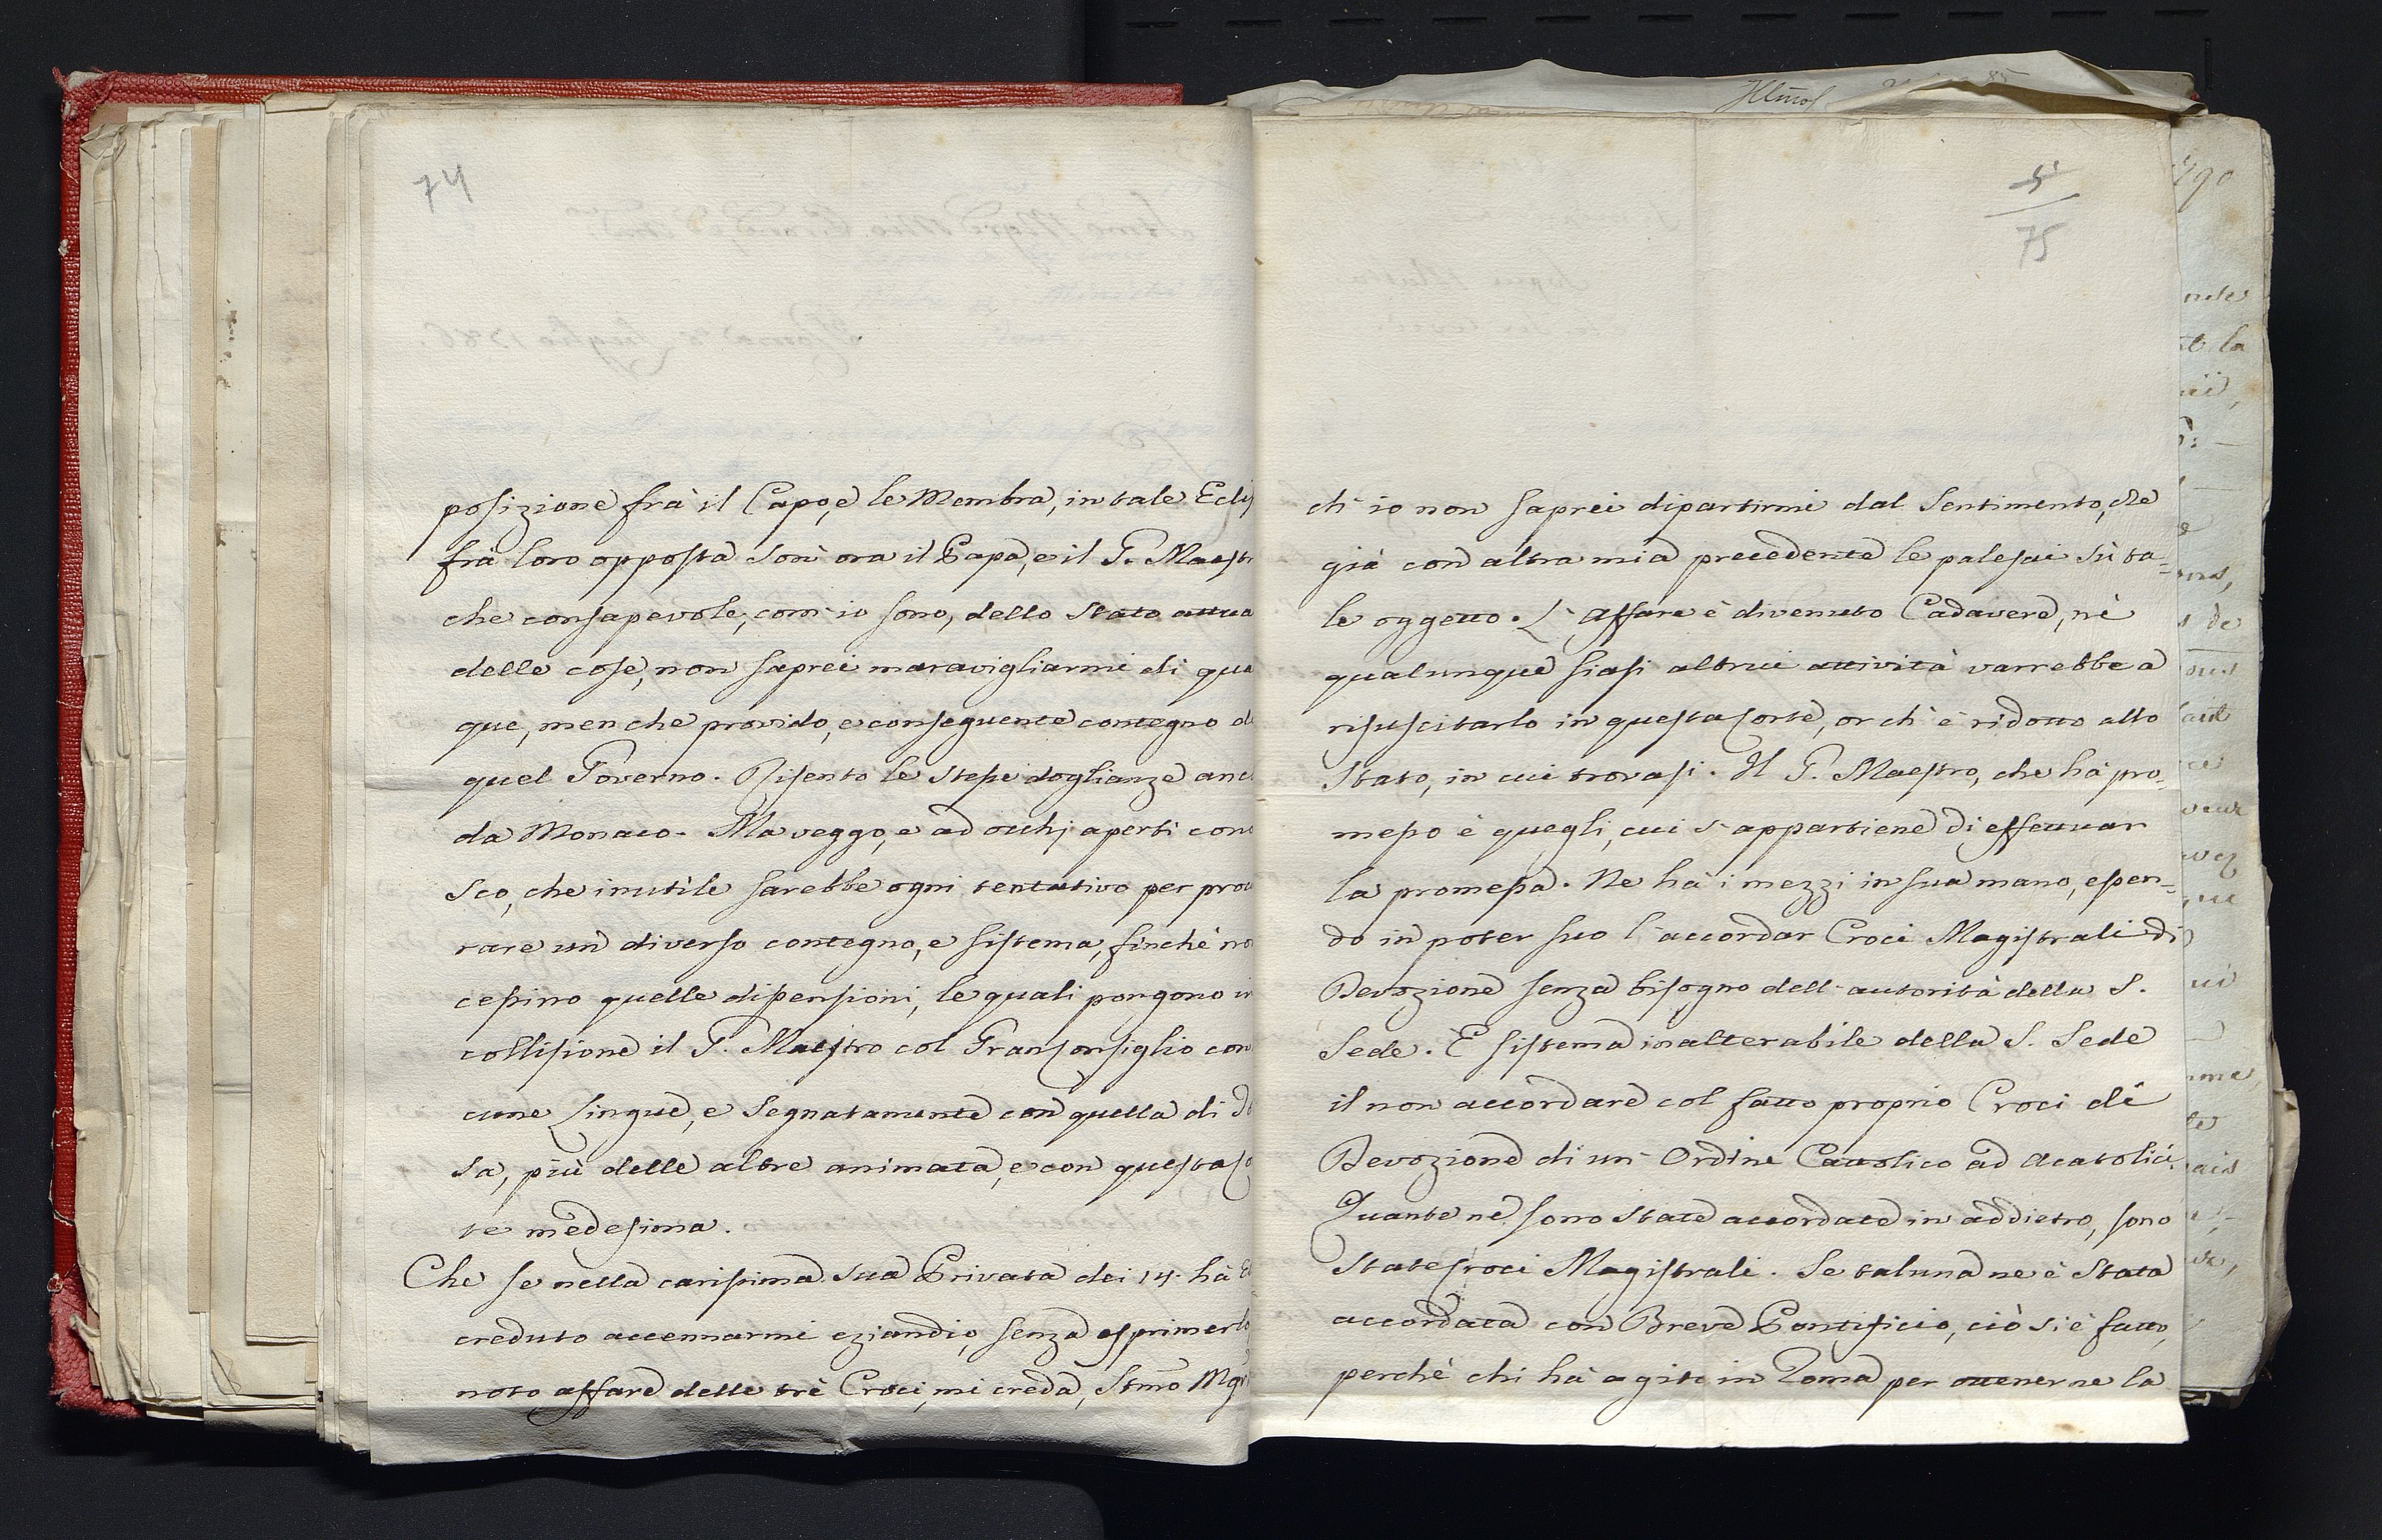 74
posizione frà il Capo, e le Membra, in tale Eclis
frà loro opposta son' ora il Papa, e il G. Maestr
che consapevole, com' io sono, dello stato attua
delle cose, non saprei maravigliarmi di qua
que, men che provido, e conseguente contegno d
quel Governo. Risento le stesse doglianze anc
da Monaco. Ma veggo, e ad occhj aperti cono
sco, che inutile sarebbe ogni tentativo per procu
rare un diverso contegno, e sistema, finchè no
cessino quelle dissensioni, le quali pongono in
collisione il G. Maestro col Gran Consiglio con
cune Lingue, e segnatamente con quella di
sa, più delle altre animata, e con questa Co
te medesima.
Che se nella carissima sua Privata dei 14. hà
creduto accennarmi eziandio, senza esprimerlo
noto affare delle trè Croci, mi creda, Stmo Mgr
5
75
ch' io non saprei dipartirmi dal sentimento, che
già con altra mia precedente le palesai sù ta=
le oggetto. L' affare è divenuto Cadavere, nè
qualunque siasi altrui attività varrebbe a
risuscitarlo in questa Corte, or ch' è ridotto allo
stato, in cui trovasi. Il G. Maestro, che hà pro=
messo è quegli, cui s' appartiene di effettuar
la promessa. Ne hà i mezzi in sua mano, essen=
do in poter suo l' accordar Croci Magistrali di
Devozione senza bisogno dell' autorità della S.
Sede. È sistema inalterabile della S. Sede
il non accordare col fatto proprio Croci di
Devozione di un' Ordine Cattolico ad Acatolici.
Quante ne sono state accordate in addietro, sono
state Croci Magistrali. Se taluna ne è stata
accordata con Breve Pontificio, ciò si è fatto,
perchè chi hà agito in Roma per ottenerne la